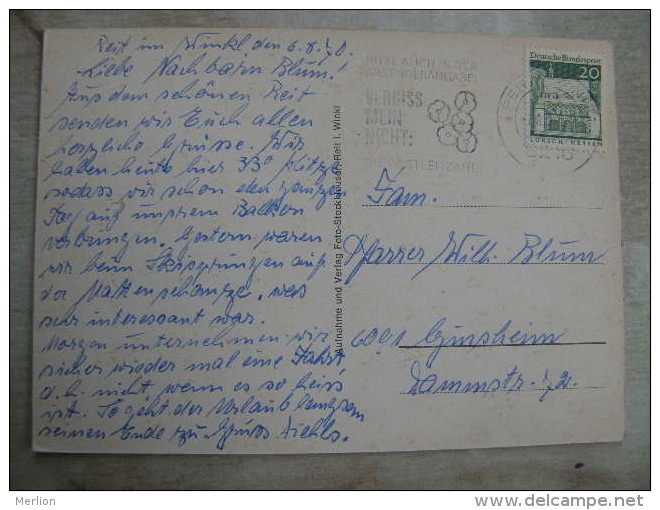 Reit im Winkl, den 6.8.70.
Liebe Nachbarn Blum!
Aus dem schönen Reit
senden wir Euch allen
herzliche Grüsse. Wir
haben heute hier 33° Hitze
sodass wir schon den ganzen
Tag auf unserem Balkon
verbringen. Gestern waren
wir beim Skispringen auf
der Mattenschanze, was
sehr interessant war.
Morgen unternehmen wir
sicher wieder mal eine Fahrt,
d.h. nicht, wenn es so heiss
ist. So geht der Urlaub langsam
seinem Ende zu. Gruss
Aufnahme und Verlag Foto-Stockhauser, Reit i. Winkl
BITTE AUCH IN DER
ABSENDERANGABE!
VERGISS
MEIN
NICHT:
DIE POSTLEITZAHL
Deutsche Bundespost
20
LORSCH/HESSEN
Fam.
Pfarrer Wilh. Blum
6091 Ginsheim
Dammstr.
Merlion
www.delcampe.net